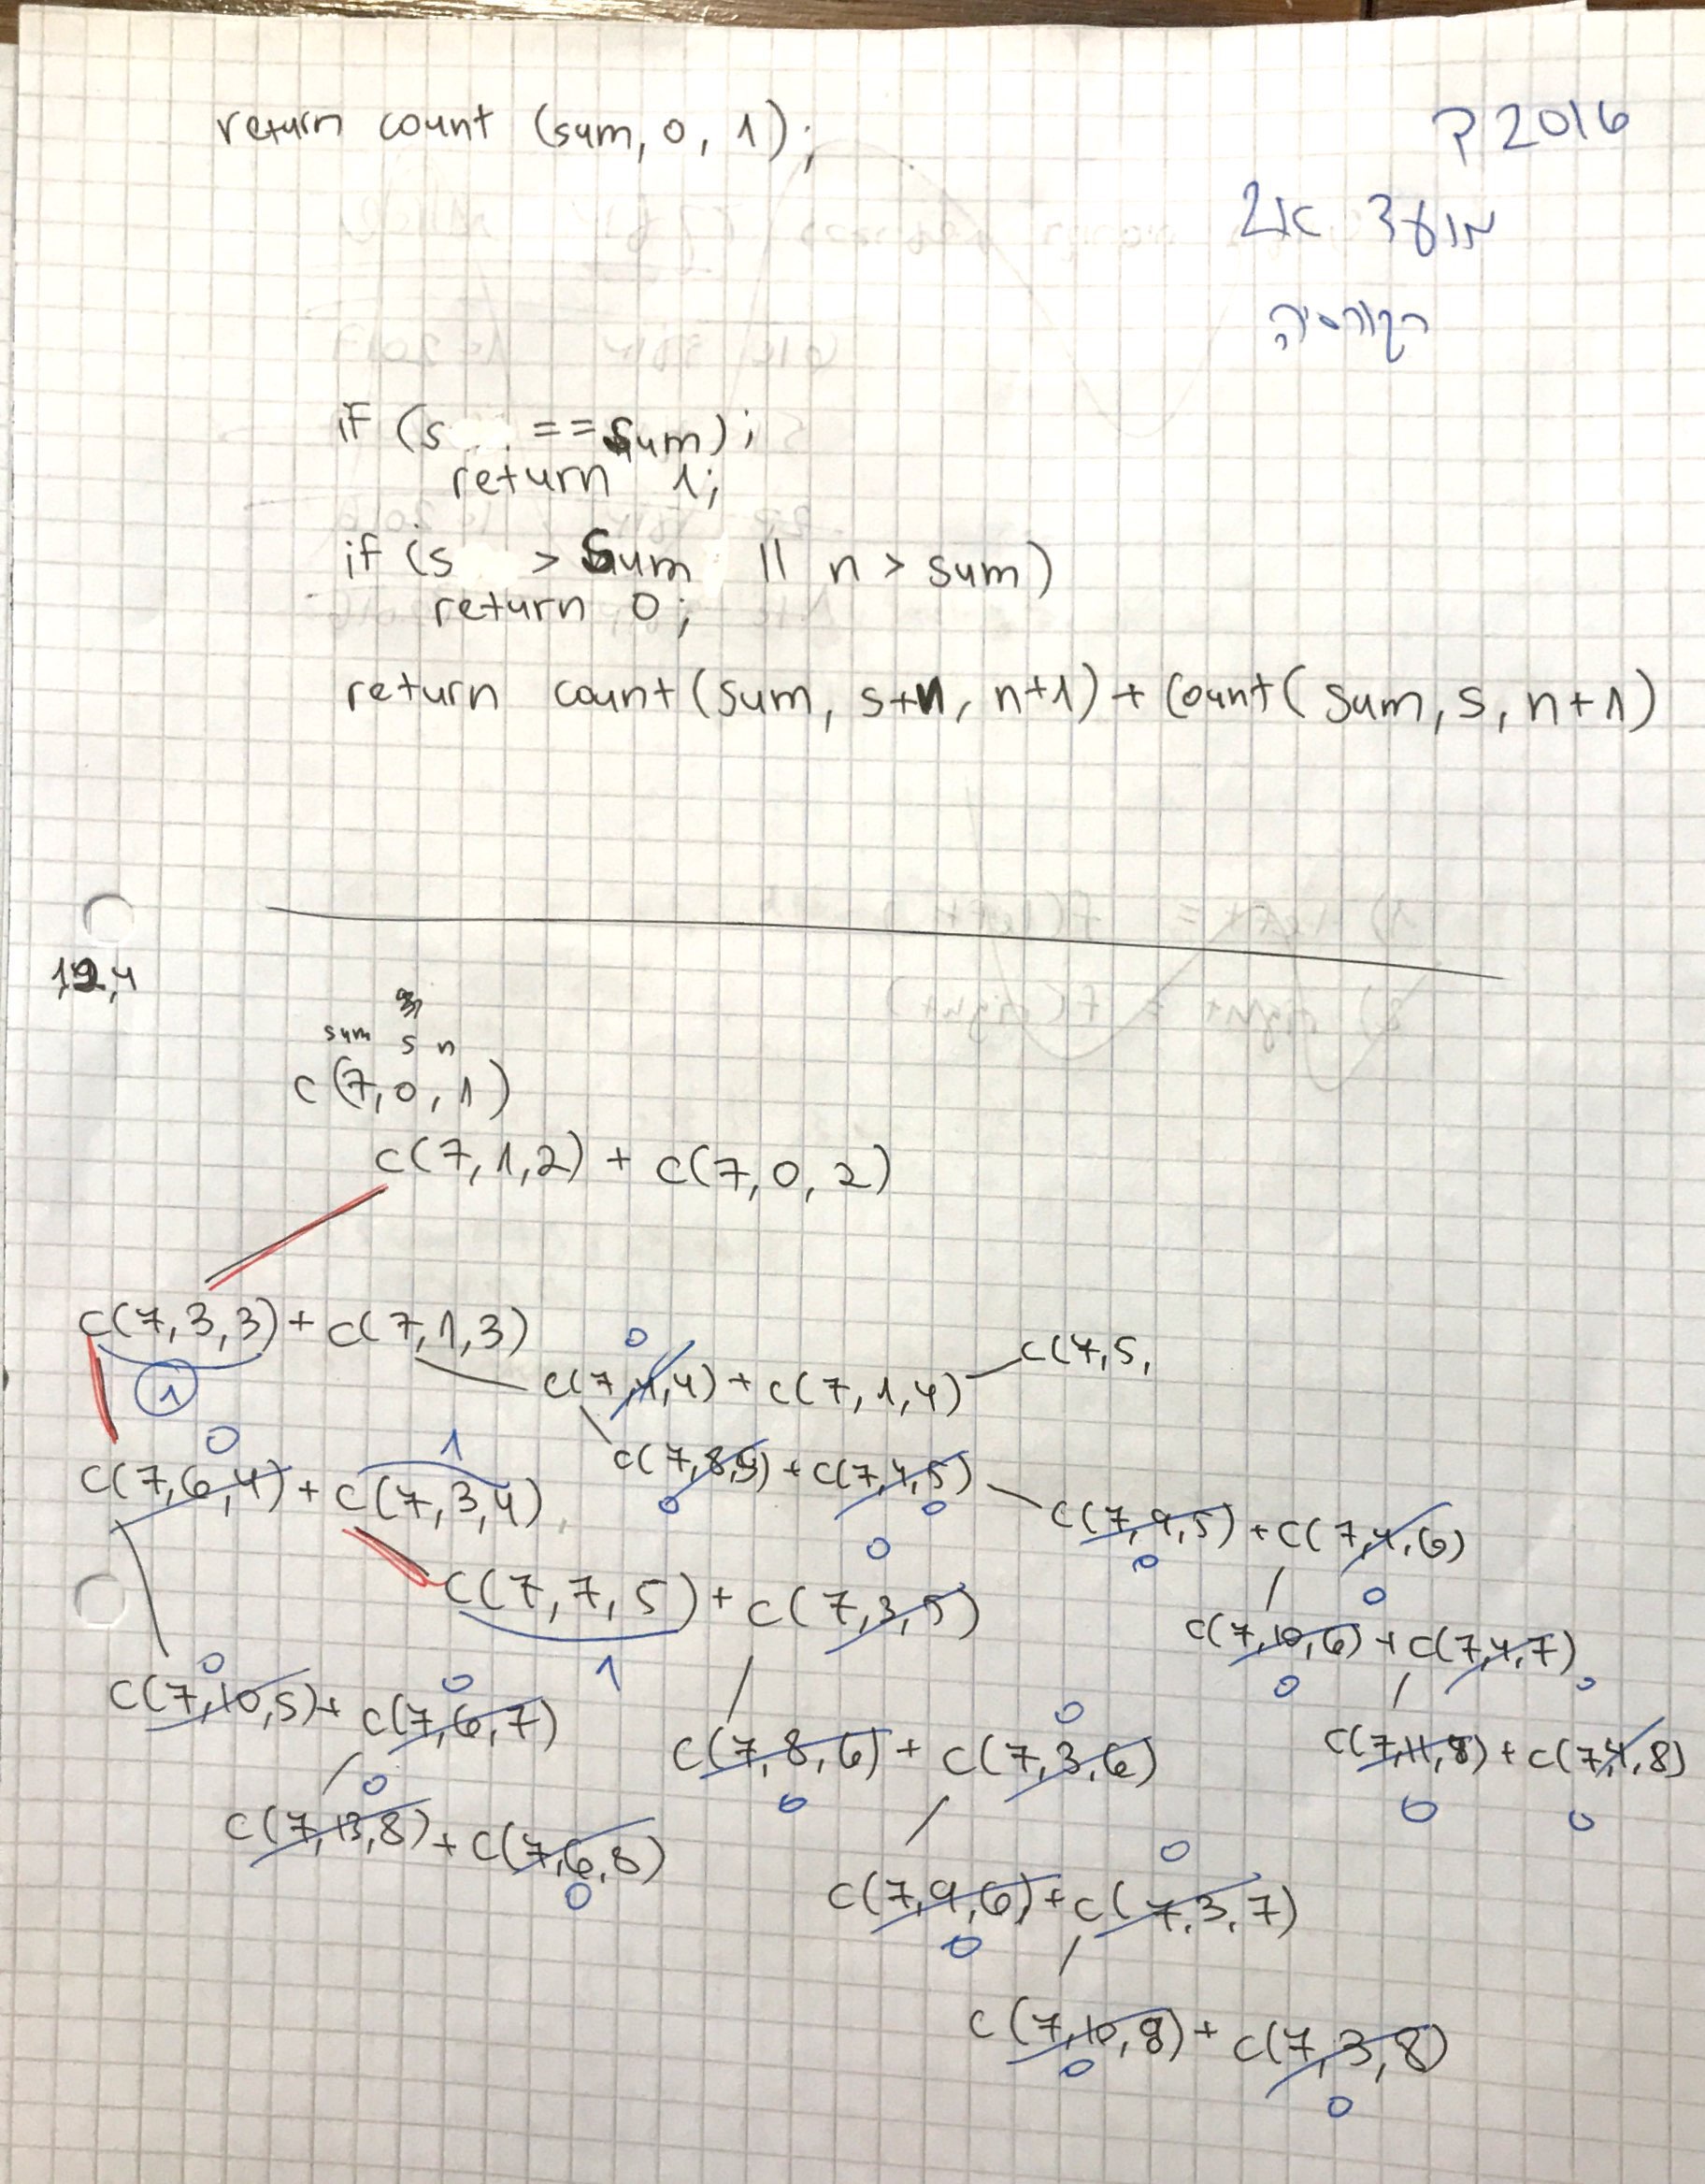 return count (sum, 0, 1);
2016
מועד
רקורסיה
if (s == sum);
return 1;
if (s > sum || n > sum)
return 0;
return count(sum, s+n, n+1) + count(sum, s, n+1)
sum s n
c(7,0,1)
c(7,1,2) + c(7,0,2)
c(7,3,3) + c(7,1,3)
1
0
c(7,4,4) + c(7,1,4)
c(7,5,
0
1
c(7,6,4) + c(7,3,4)
c(7,8,5) + c(7,4,5)
0
0
c(7,9,5) + c(7,4,6)
0
0
0
c(7,7,5) + c(7,3,5)
1
c(7,10,6) + c(7,4,7)
0
0
0
0
c(7,10,5) + c(7,6,7)
0
c(7,8,6) + c(7,3,6)
0
c(7,11,8) + c(7,4,8)
0
0
0
c(7,13,8) + c(7,6,8)
0
0
c(7,9,6) + c(7,3,7)
0
c(7,10,8) + c(7,3,8)
0
0